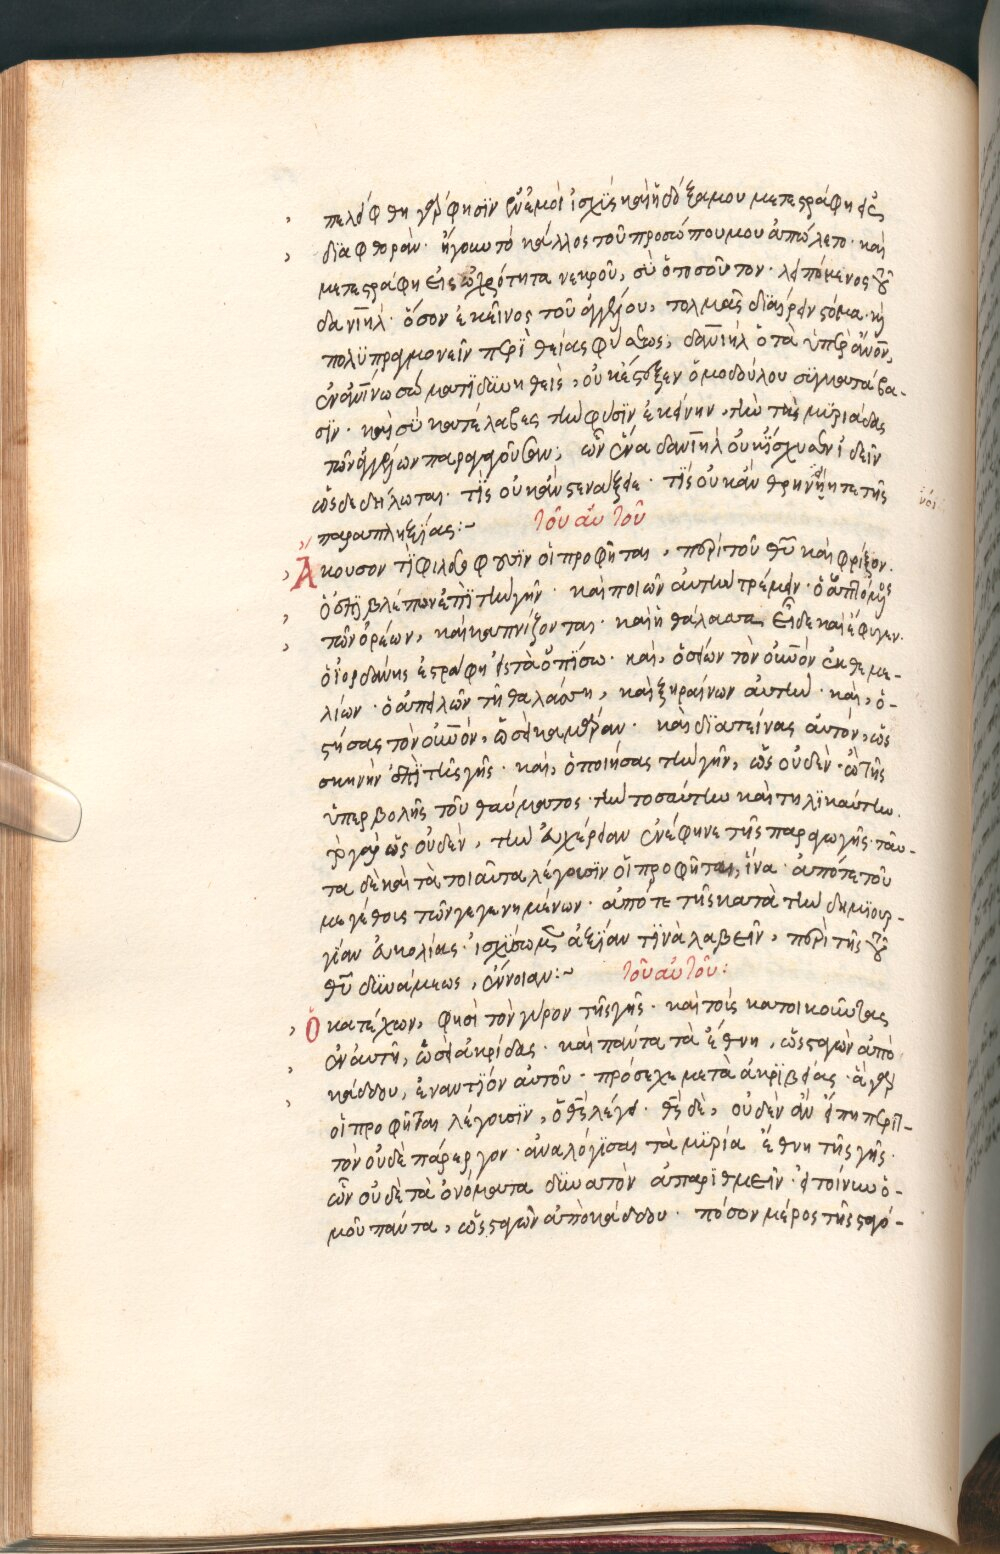 πελείφθη γὰρ φησὶν ἐν ἐμοὶ ἰσχὺς καὶ ἡ δόξα μου μετεστράφη εἰς
διαφθοράν· ἤγουν τὸ κάλλος τοῦ προσώπου μου ἀπώλετο· καὶ
μετεστράφη εἰς ὠχρότητα νεκροῦ, σὺ ὁ τοσοῦτον· λειπόμενος τοῦ
δανιὴλ· ὅσον ἐκεῖνος τοῦ ἀγγέλου, τολμᾶς διαίρειν στόμα· καὶ
πολυπραγμονεῖν περὶ θείας φύσεως; δανιὴλ ὁ τὰ ὑπὲρ ἄνον,
ἐν ἀνίνω σώματι διωχθεὶς, οὐκ ἔστεξεν ὁμοδούλου συγκατάβα-
σιν· καὶ σὺ κατέλαβες τὴν φύσιν ἐκείνην, τὴν τὰς μυριάδας
τῶν ἀγγέλων παραγαγοῦσαν; ὧν ἕνα δανιὴλ οὐκ ἴσχυσεν ἰδεῖν
ὡς δεδήλωται· τίς οὐκ ἂν στενάξειε· τίς οὐκ ἂν θρηνήσῃ τε τῆς
παραπληξίας:~ τοῦ αὐτοῦ
Ἄκουσον τί φιλοσοφοῦσιν οἱ προφῆται, περὶ τοῦ θυ καὶ φρίξον.
ὁ ἐπιβλέπων ἐπὶ τὴν γῆν· καὶ ποιῶν αὐτὴν τρέμειν· ὁ ἁπτόμενος
τῶν ὀρέων, καὶ καπνίζονται· καὶ ἡ θάλασσα εἶδε καὶ ἔφυγεν.
ὁ ἰορδάνης ἐστράφη εἰς τὰ ὀπίσω· καὶ, ὁ σείων τὸν οὐνὸν ἐκ θεμε-
λίων· ὁ ἀπειλῶν τῇ θαλάσσῃ, καὶ ξηραίνων αὐτήν· καὶ, ὁ-
στήσας τὸν οὐνὸν, ὡσεὶ καμάραν· καὶ διατείνας αὐτόν, ὡς
σκηνὴν ἐπὶ τῆς γῆς· καὶ, ὁ ποιήσας τὴν γῆν, ὡς οὐδὲν· ὢ τῆς
ὑπερβολῆς τοῦ θαύματος· τὴν τοσαύτην καὶ τηλικαύτην.
τὸ γὰρ ὡς οὐδὲν, τὴν εὐχέρειαν ἐνέφηνε τῆς παραγωγῆς· ταῦ-
τα δὲ καὶ τὰ τοιαῦτα λέγουσιν οἱ προφῆται, ἵνα· ἀπό τε τοῦ
μεγέθους τῶν γεγενημένων· ἀπό τε τῆς κατὰ τὴν δημιουρ-
γίαν εὐκολίας· ἰσχύσωμεν ἀξίαν τινὰ λαβεῖν, περὶ τῆς τοῦ
θυ δυνάμεως, ἔννοιαν:~ τοῦ αὐτοῦ:
Ὁ κατέχων, φησὶ τὸν γύρον τῆς γῆς· καὶ τοὺς κατοικοῦντας
ἐν αὐτῇ, ὡσεὶ ἀκρίδας· καὶ πάντα τὰ ἔθνη, ὡς σταγὼν ἀπὸ
κάδδου, ἐναντίον αὐτοῦ· πρόσεχε μετὰ ἀκριβείας· ἃ γὰρ
οἱ προφῆται λέγουσιν, ὁ θς λέγει· θς δὲ, οὐδὲν ἂν εἴπῃ περιτ-
τὸν οὐδὲ πάρεργον· ἀναλόγισαι τὰ μυρία ἔθνη τῆς γῆς·
ὧν οὐδὲ τὰ ὀνόματα δυνατὸν ἀπαριθμεῖν· εἰ τοίνυν ὁ-
μοῦ πάντα, ὡς σταγὼν ἀπὸ κάδδου· πόσον μέρος τῆς σταγό-